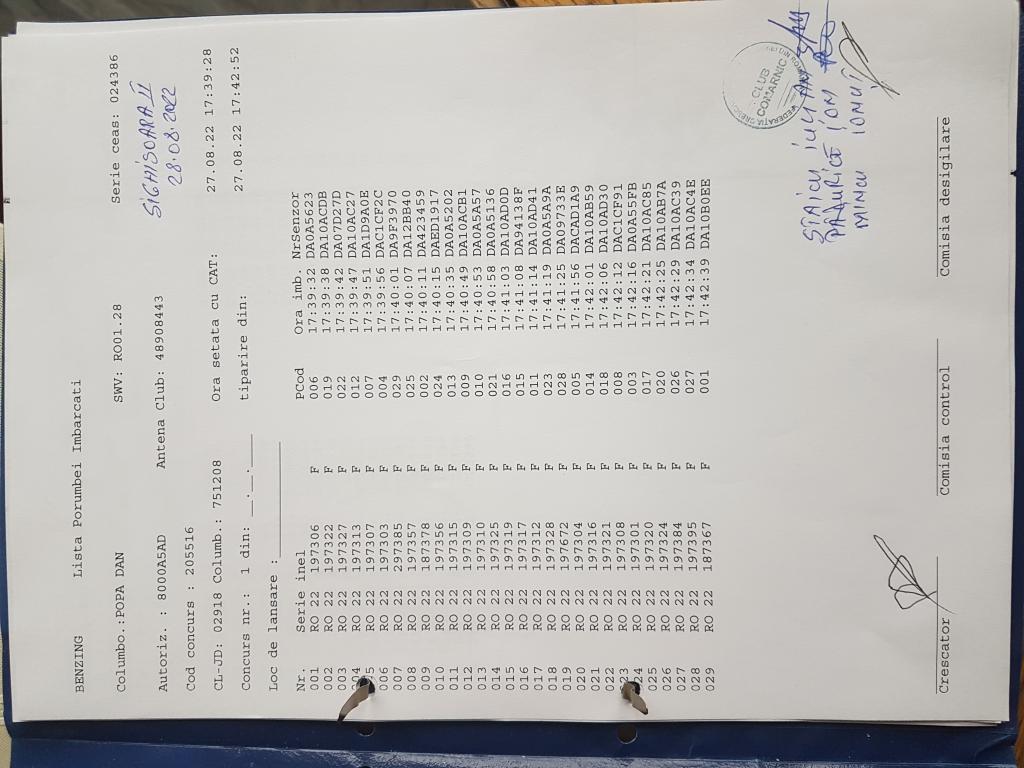 BENZING Lista Porumbei Imbarcati
Columbo.:POPA DAN SWV: RO01.28 Serie ceas: 024386
Autoriz. : 8000A5AD Antena Club: 48908443
SIGHISOARA II
28.08.2022
Cod concurs : 205516
CL-JD: 02918 Columb.: 751208 Ora setata cu CAT: 27.08.22 17:39:28
Concurs nr.: 1 din: __.__.____ tiparire din: 27.08.22 17:42:52
Loc de lansare : ____________
Nr. Serie inel PCod Ora imb. NrSenzor
001 RO 22 197306 F 006 17:39:32 DA0A5623
002 RO 22 197322 F 019 17:39:38 DA10ACDB
003 RO 22 197327 F 022 17:39:42 DA07D27D
004 RO 22 197313 F 012 17:39:47 DA10AC27
005 RO 22 197307 F 007 17:39:51 DA1D9A0E
006 RO 22 197303 F 004 17:39:56 DAC1CF2C
007 RO 22 297385 F 029 17:40:01 DA9F3970
008 RO 22 197357 F 025 17:40:07 DA12BB40
009 RO 22 187378 F 002 17:40:11 DA423459
010 RO 22 197356 F 024 17:40:15 DAED1017
011 RO 22 197315 F 013 17:40:35 DA0A5202
012 RO 22 197309 F 009 17:40:49 DA10ACB1
013 RO 22 197310 F 010 17:40:53 DA0A5A57
014 RO 22 197325 F 021 17:40:58 DA0A5136
015 RO 22 197319 F 016 17:41:03 DA10AD0D
016 RO 22 197317 F 015 17:41:08 DA94138F
017 RO 22 197312 F 011 17:41:14 DA10AD41
018 RO 22 197328 F 023 17:41:19 DA0A5A9A
019 RO 22 197672 F 028 17:41:25 DA09733E
020 RO 22 197304 F 005 17:41:56 DACAD1A9
021 RO 22 197316 F 014 17:42:01 DA10AB59
022 RO 22 197321 F 018 17:42:06 DA10AD30
023 RO 22 197308 F 008 17:42:12 DAC1CF91
024 RO 22 197301 F 003 17:42:16 DA0A55FB
025 RO 22 197320 F 017 17:42:21 DA10AC85
026 RO 22 197324 F 020 17:42:25 DA10AB7A
027 RO 22 197384 F 026 17:42:29 DA10AC39
028 RO 22 197395 F 027 17:42:34 DA10AC4E
029 RO 22 187367 F 001 17:42:39 DA10B0EE
CLUB
COMARNIC
PADURICE ION
MINCU IONUT
Crescator Comisia control Comisia desigilare